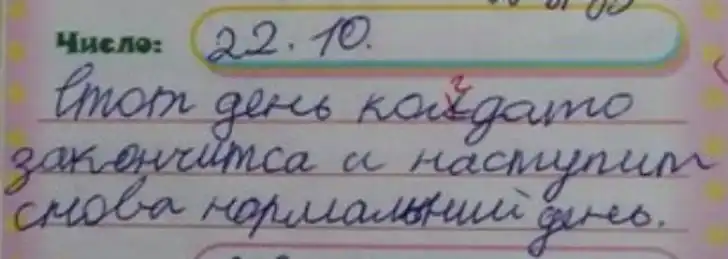 Число: 22.10.
Этот день кождато
закончитса и наступит
снова нормальний день.